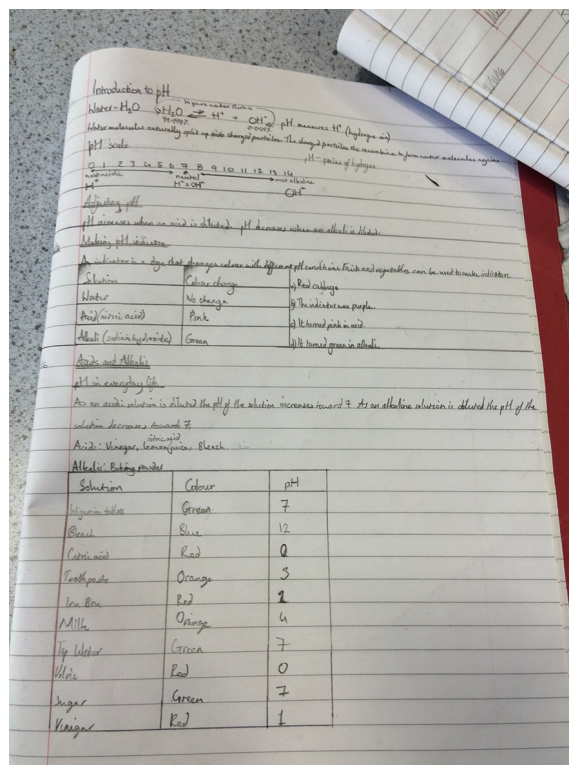 Introduction to pH
In pure water there is
Water - H₂O H₂O ⇌ H⁺ + OH⁻ pH measures H⁺ (hydrogen ion)
Water molecules naturally split up into charged particles. The charged particles the recombine to form water molecules again
pH scale pH - of hydrogen
0 1 2 3 4 5 6 7 8 9 10 11 12 13 14
most acidic neutral most alkaline
H⁺ H⁺=OH⁻ OH⁻
Adjusting pH
pH increases when an acid is diluted. pH decreases when an alkali is diluted.
Making pH indicator
An indicator is a dye that changes colour with different pH conditions. Fruits and vegetables can be used to make indicators.
Solution Colour change a) Red cabbage
Water No change b) The indicator was purple.
Acid (nitric acid) Pink c) It turned pink in acid.
Alkali (sodium hydroxide) Green d) It turned green in alkali.
Acids and Alkalis
pH in everyday life
As an acidic solution is diluted the pH of the solution increases toward 7. As an alkaline solution is diluted the pH of the
solution decreases toward 7.
citric acid
Acid: Vinegar, Lemon juice, Bleach
Alkalis: Baking powder
Solution Colour pH
Green 7
Bleach Blue 12
Citric acid Red 0
Toothpaste Orange 3
Irn Bru Red 1
Milk Orange 4
Tap Water Green 7
Red 0
Sugar Green 7
Vinegar Red 1